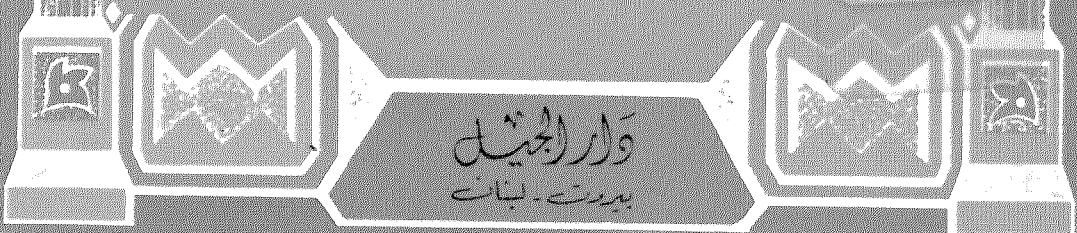 دَار الجيْل
بيروت - لبنان